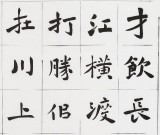 才飲長
江橫渡
打勝佀
在川上